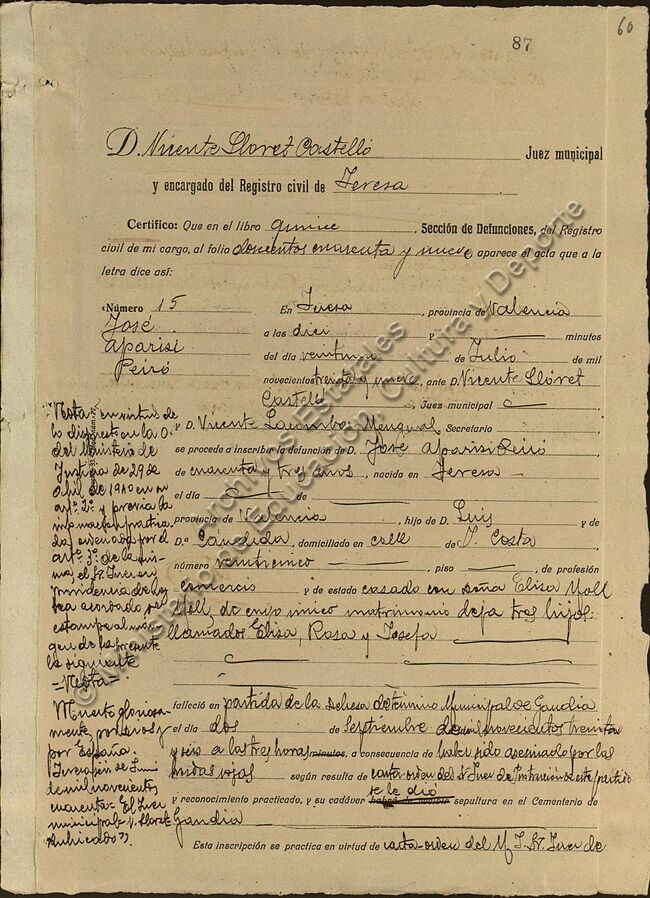 87
60
D. Vicente Lloret Castelló Juez municipal
y encargado del Registro civil de Teresa
Certifico: Que en el libro quince, Sección de Defunciones, del Registro
civil de mi cargo, al folio doscientos cuarenta y nueve aparece el acta que a la
letra dice así:
«Número 15
José
Aparisi
Peiró
En Teresa, provincia de Valencia
a las diez y minutos
del día veintiuno de Julio de mil
novecientos treinta y nueve, ante D. Vicente Lloret
Castelló, Juez municipal
y D. Vicente Mengual, Secretario
se procede a inscribir la defunción de D. José Aparisi Peiró
de cuarenta y tres años, nacido en Teresa
el día de
provincia de Valencia, hijo de D. Luis y de
D.ª Candida, domiciliado en calle de J. Costa,
número veinticinco, piso, de profesión
comercio y de estado casado con doña Elisa Moll
de cuyo único matrimonio deja tres hijos
llamados Elisa, Rosa y Josefa
falleció en partida de la Dehesa de término Municipal de Gandia
el día dos de Septiembre de mil novecientos treinta
y seis a las tres horas minutos, a consecuencia de haber sido asesinado por las
hordas rojas según resulta de carta-orden del Sr Juez de Instrucción de este partido
se le dió
y reconocimiento practicado, y su cadáver habrá de recibir sepultura en el Cementerio de
Gandia
Esta inscripción se practica en virtud de carta-orden del M. I. Sr. Juez de
Nota= en virtud de
lo dispuesto en la O.
del Ministerio de
Justicia de 29 de
Abril de 1940 en su
artº 2º y previa la
practica
da ordenada por el
artº 3º de la mis
ma, el Sr Juez en
providencia de hoy
ha acordado se
estampe al mar
gen de la presente
la siguiente
=Nota=
Muerto gloriosa
mente por Dios y
por España.
Teresa de Junio
de mil novecientos
cuarenta= El Juez
municipal= V. Lloret=
Rubricado»
© Ministerio de Educación, Cultura y Deporte
Archivos Estatales